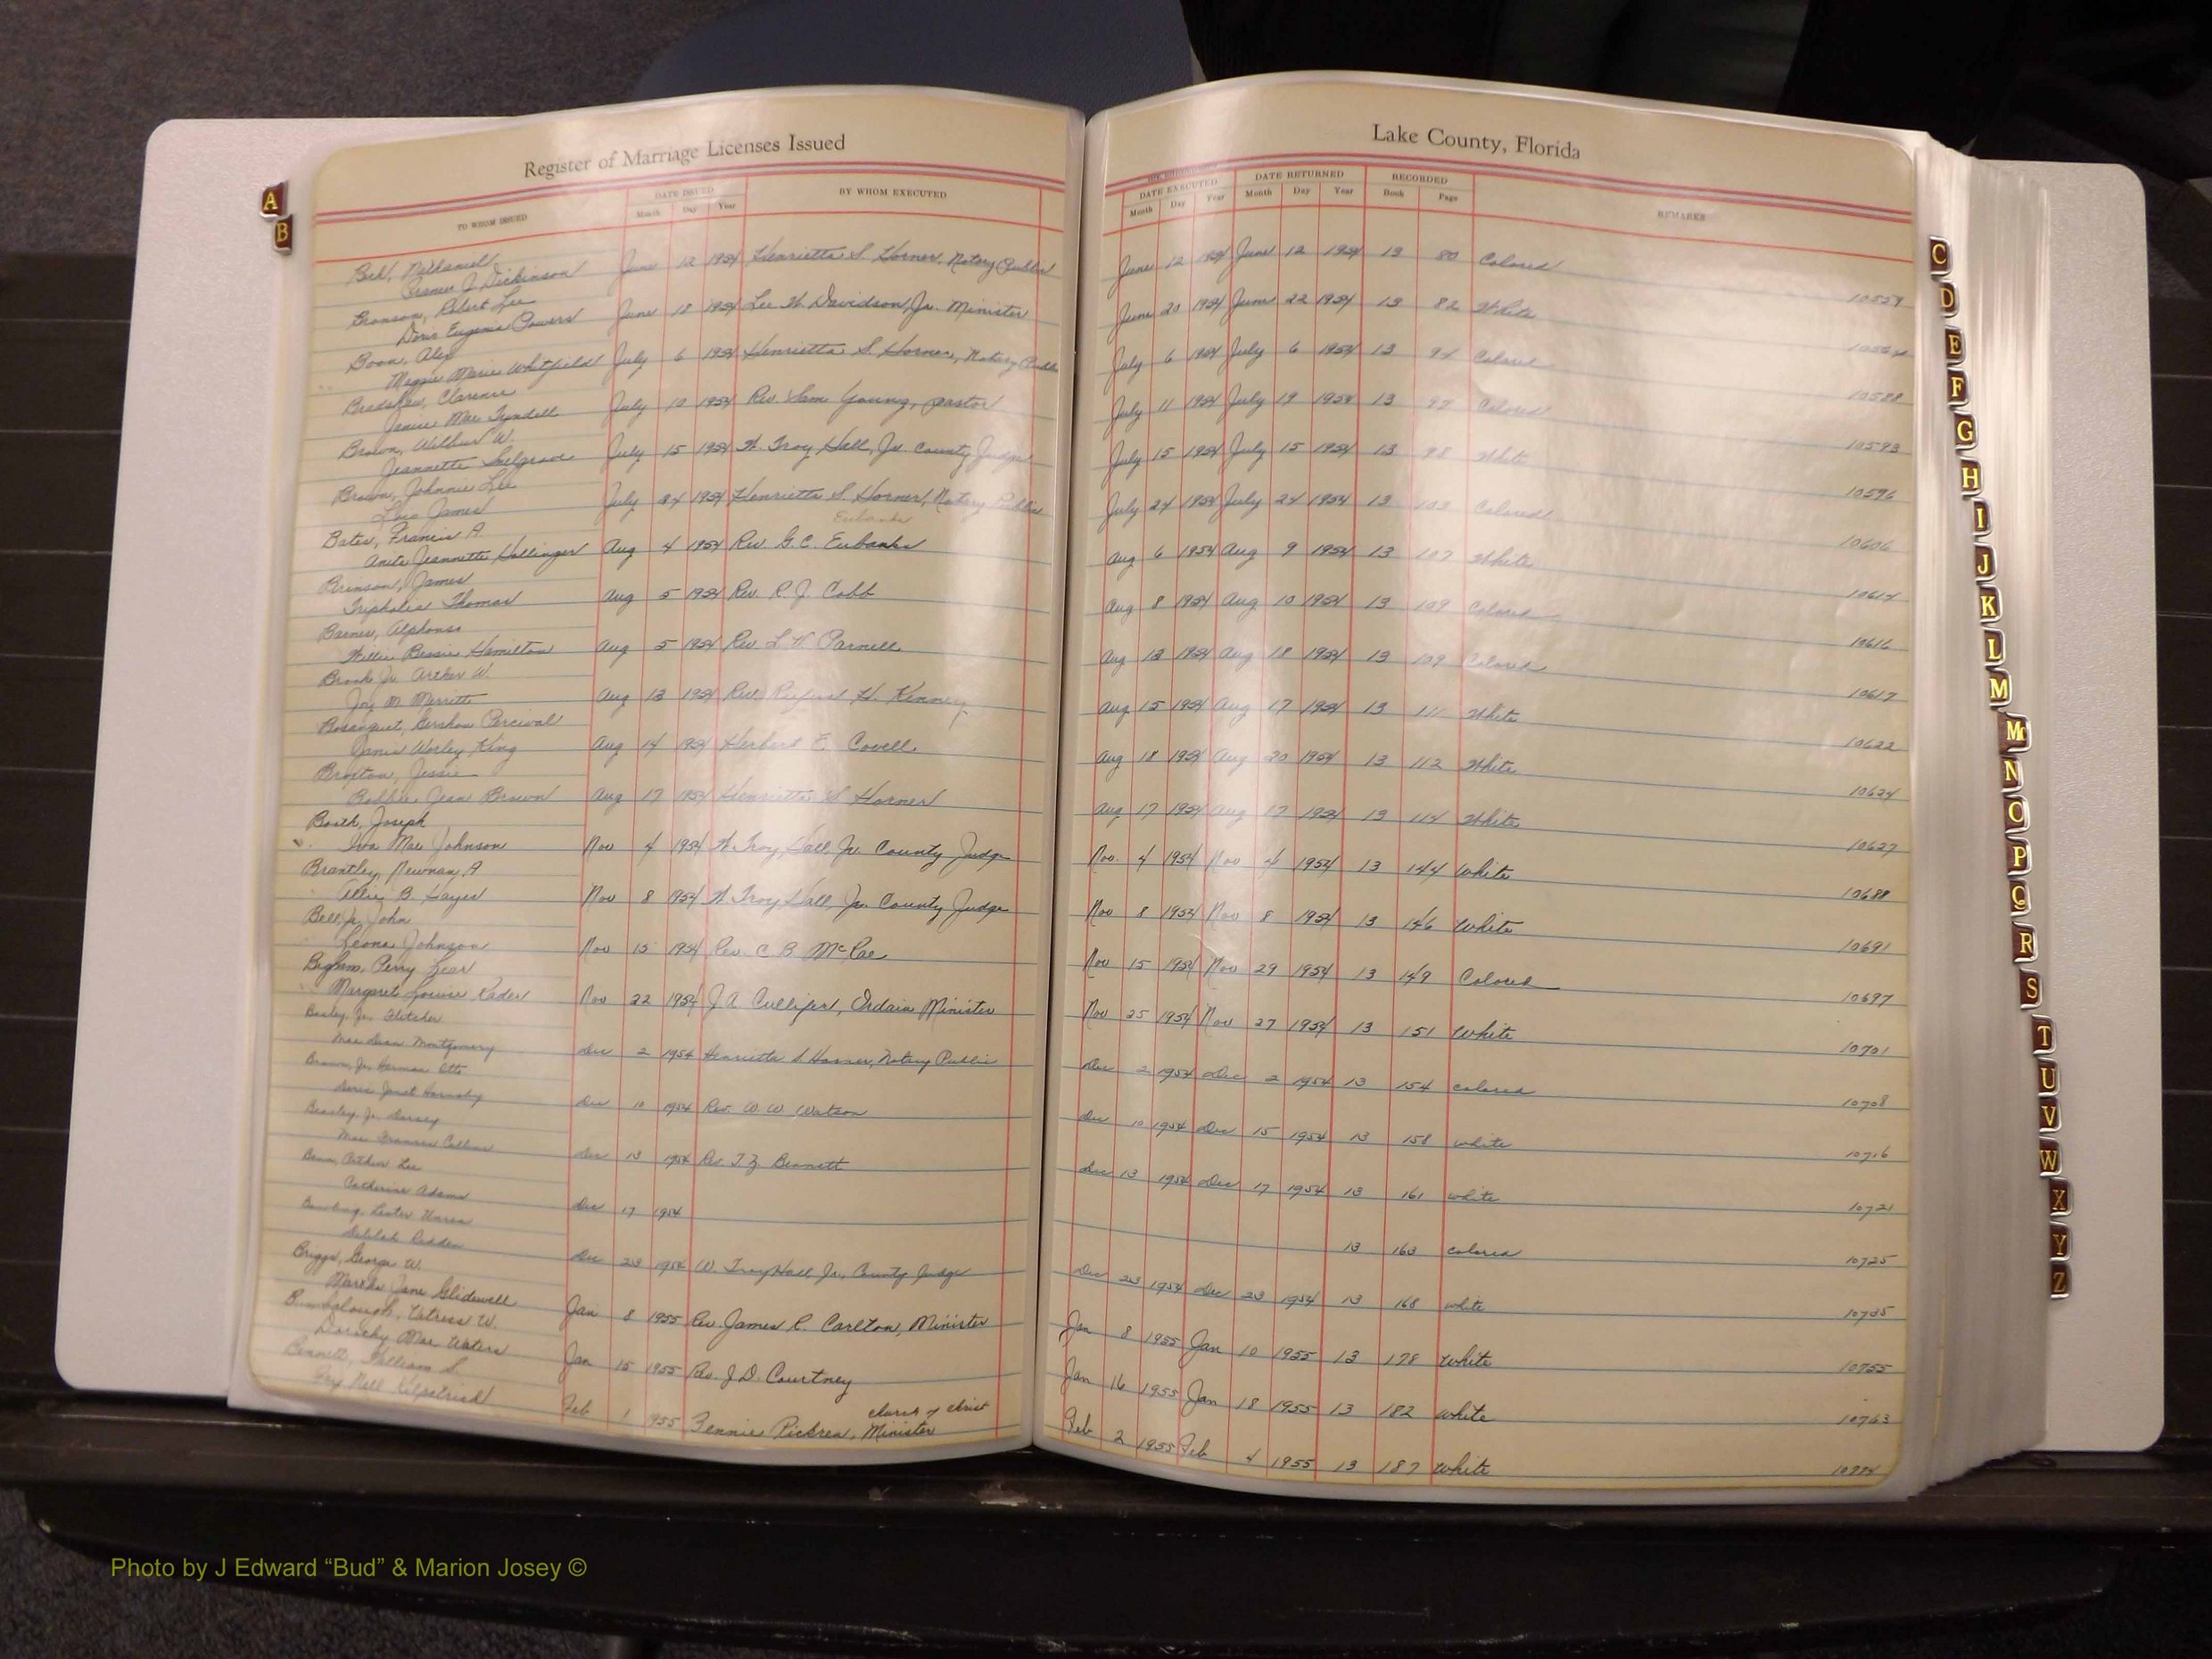 Register of Marriage Licenses Issued
Lake County, Florida
TO WHOM ISSUED
DATE ISSUED
Month Day Year
BY WHOM EXECUTED
DATE EXECUTED
Month Day Year
DATE RETURNED
Month Day Year
RECORDED
Book Page
REMARKS
Bell, Nathaniel
Dickinson June 12 1954 Henrietta S. Horner, Notary Public June 12 1954 June 12 1954 13 80 Colored 10559
Bronson, Robert Lee
Doris Eugenia Powers June 18 1954 Lee H. Davidson, Jr. Minister June 20 1954 June 22 1954 13 82 White
Boon, Alex
Maggie Marie Whitfield July 6 1954 Henrietta S. Horner, Notary Public July 6 1954 July 6 1954 13 94 Colored 10588
Bradshaw, Clarence
Janie Mae Tyndell July 10 1954 Rev. Sam Young, pastor July 11 1954 July 19 1954 13 97 Colored 10593
Brown, Wilbur W.
Jeannette Snelgrove July 15 1954 W. Troy Hall, Jr. County Judge July 15 1954 July 15 1954 13 98 White 10596
Brown, Johnnie Lee
Lois James July 24 1954 Henrietta S. Horner, Notary Public July 24 1954 July 24 1954 13 103 Colored 10606
Eubanks
Bates, Francis A.
Anita Jeannette Hollinger Aug 4 1954 Rev. G.C. Eubanks Aug 6 1954 Aug 9 1954 13 107 White 10614
Brinson, James
Thomas Aug 5 1954 Rev. R. J. Cobb Aug 8 1954 Aug 10 1954 13 109 Colored 10616
Barnes, Alphonso
Willie Bessie Hamilton Aug 5 1954 Rev. L. W. Parnell Aug 12 1954 Aug 18 1954 13 109 Colored 10617
Brook Jr. Arthur W.
Joy M. Merritt Aug 13 1954 Rev. Rufus H. Kenney Aug 15 1954 Aug 17 1954 13 111 White 10622
Bosanquet, Gershom Percival
Janis Worley King Aug 14 1954 Herbert E. Covell Aug 18 1954 Aug 20 1954 13 112 White 10624
Broxton, Jessie
Bobbie Jean Brown Aug 17 1954 Henrietta S Horner Aug 17 1954 Aug 17 1954 13 114 White 10627
Booth, Joseph
Iva Mae Johnson Nov 4 1954 W. Troy Hall, Jr. County Judge Nov. 4 1954 Nov 4 1954 13 144 White 10688
Brantley, Newman A
Allie B. Hayes Nov 8 1954 W. Troy Hall, Jr. County Judge Nov 8 1954 Nov 8 1954 13 146 White 10691
Bell, Jr. John
Leona Johnson Nov 15 1954 Rev. C B McRae Nov 15 1954 Nov 29 1954 13 149 Colored 10697
Bigham, Perry Lear
Margaret Louise Rader Nov 22 1954 J. A. Cullifer, Ordain Minister Nov 25 1954 Nov 27 1954 13 151 White 10701
Beasley, Jr. Fletcher
Mae Dean Montgomery Dec 2 1954 Henrietta S. Horner, Notary Public Dec 2 1954 Dec 2 1954 13 154 colored 10708
Brown, Jr. Herman Otto
Doris Janet Hornsby Dec 10 1954 Rev. W. W. Watson Dec 10 1954 Dec 15 1954 13 158 white 10716
Beasley, Jr. Dorsey
Mae Frances Collins Dec 13 1954 Rev. T. Z. Bennett Dec 13 1954 Dec 17 1954 13 161 white 10721
Benn, Arthur Lee
Catherine Adams Dec 17 1954 13 163 colored 10725
Bowling, Lester
Delilah Redden Dec 23 1954 W. Troy Hall, Jr., County Judge Dec 23 1954 Dec 23 1954 13 168 white 10735
Briggs, George W.
Martha Jane Glidewell Jan 8 1955 Rev. James R. Carlton, Minister Jan 8 1955 Jan 10 1955 13 178 White 10755
Bumbalough, Vatress W.
Dorothy Mae Waters Jan 15 1955 Rev. J. D. Courtney Jan 16 1955 Jan 18 1955 13 182 White 10763
Bennett, William S.
church of Christ
Kilpatrick Feb 1 1955 Bennie Pickren, Minister Feb 2 1955 Feb 4 1955 13 187 White
A
B
C
D
E
F
G
H
I
J
K
L
M
Mc
N
O
P
Q
R
S
T
U
V
W
X
Y
Z
Photo by J Edward “Bud” & Marion Josey ©